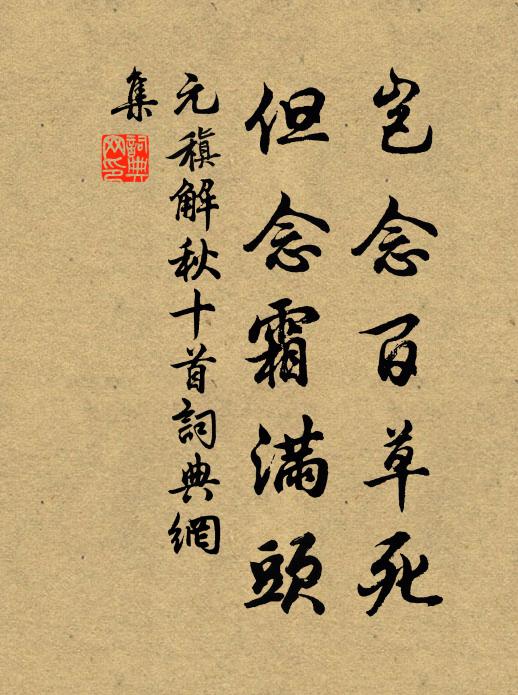 豈念百草死
但念霜滿頭
元稹解秋十首詞典網
集
詞典
网印